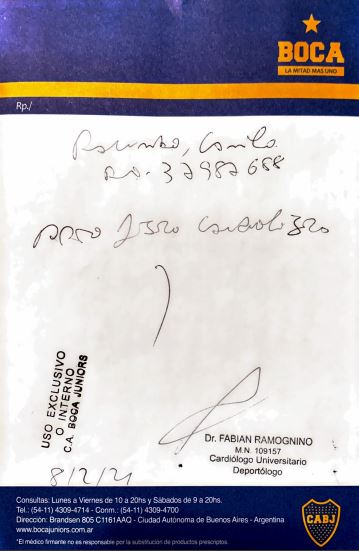 BOCA
LA MITAD MAS UNO
Rp./
DNI. 32982688
APTO FISICO CARDIOLOGICO
USO EXCLUSIVO
O INTERNO
C.A. BOCA JUNIORS
8/2/21
Dr. FABIAN RAMOGNINO
M.N. 109157
Cardiólogo Universitario
Deportólogo
Consultas: Lunes a Viernes de 10 a 20hs y Sábados de 9 a 20hs.
Tel.: (54-11) 4309-4714 - Conm.: (54-11) 4309-4700
Dirección: Brandsen 805 C1161AAQ - Ciudad Autónoma de Buenos Aires - Argentina
www.bocajuniors.com.ar
*El médico firmante no es responsable por la substitución de productos prescriptos.
CABJ